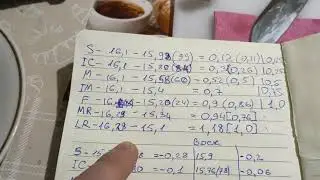 S - 16,1 - 15,98(99) = 0,12(0,11) |0,15
IC - 16,1 - 15,80(84) = 0,3(0,26) |0,25
M - 16,1 - 15,58(60) = 0,52(0,5) |0,5
IM - 16,1 - 15,4 = 0,7 |0,75
F - 16,1 - 15,20(24) = 0,9(0,86) |1,0
MR - 16,28 - 15,34 = 0,94[0,76]
LR - 16,28 - 15,1 = 1,18[1,0]
Воск
S - 15 = -0,28 |15,9 -0,2
IC = -0,1 |15,76/78| -0,06